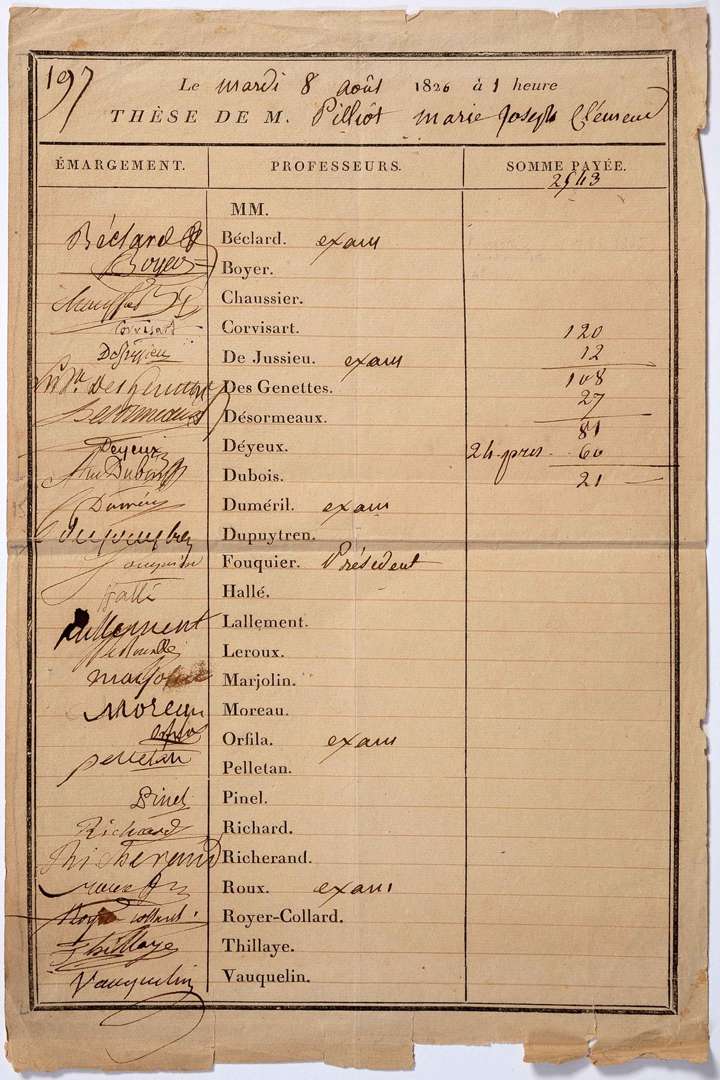 197
Le mardi 8 août 1826 à 1 heure
THÈSE DE M. Pilliot marie Joseph
ÉMARGEMENT. PROFESSEURS. SOMME PAYÉE.
2543
MM.
Béclard Béclard. exam
Boyer Boyer.
Chaussier.
Corvisart Corvisart. 120
DeJussieu De Jussieu. exam 12
Des Genettes. 108
27
Desormeaux Désormeaux.
81
Deyeux Déyeux. 24 pres 60
Dubois Dubois. 21
Duméril Duméril. exam
dupuytren Dupuytren.
fouquier Fouquier. Président
hallé Hallé.
Lallement Lallement.
Leroux.
marjolin Marjolin.
Moreau Moreau.
Orfila Orfila. exam
pelletan Pelletan.
Pinel Pinel.
Richard Richard.
Richerand Richerand.
roux Roux. exam
Royer collard Royer-Collard.
Thillaye Thillaye.
Vauquelin Vauquelin.